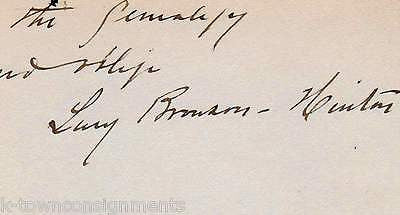 the Genealogy
and oblige
Lucy Bronson - Hinton
k-townconsignments